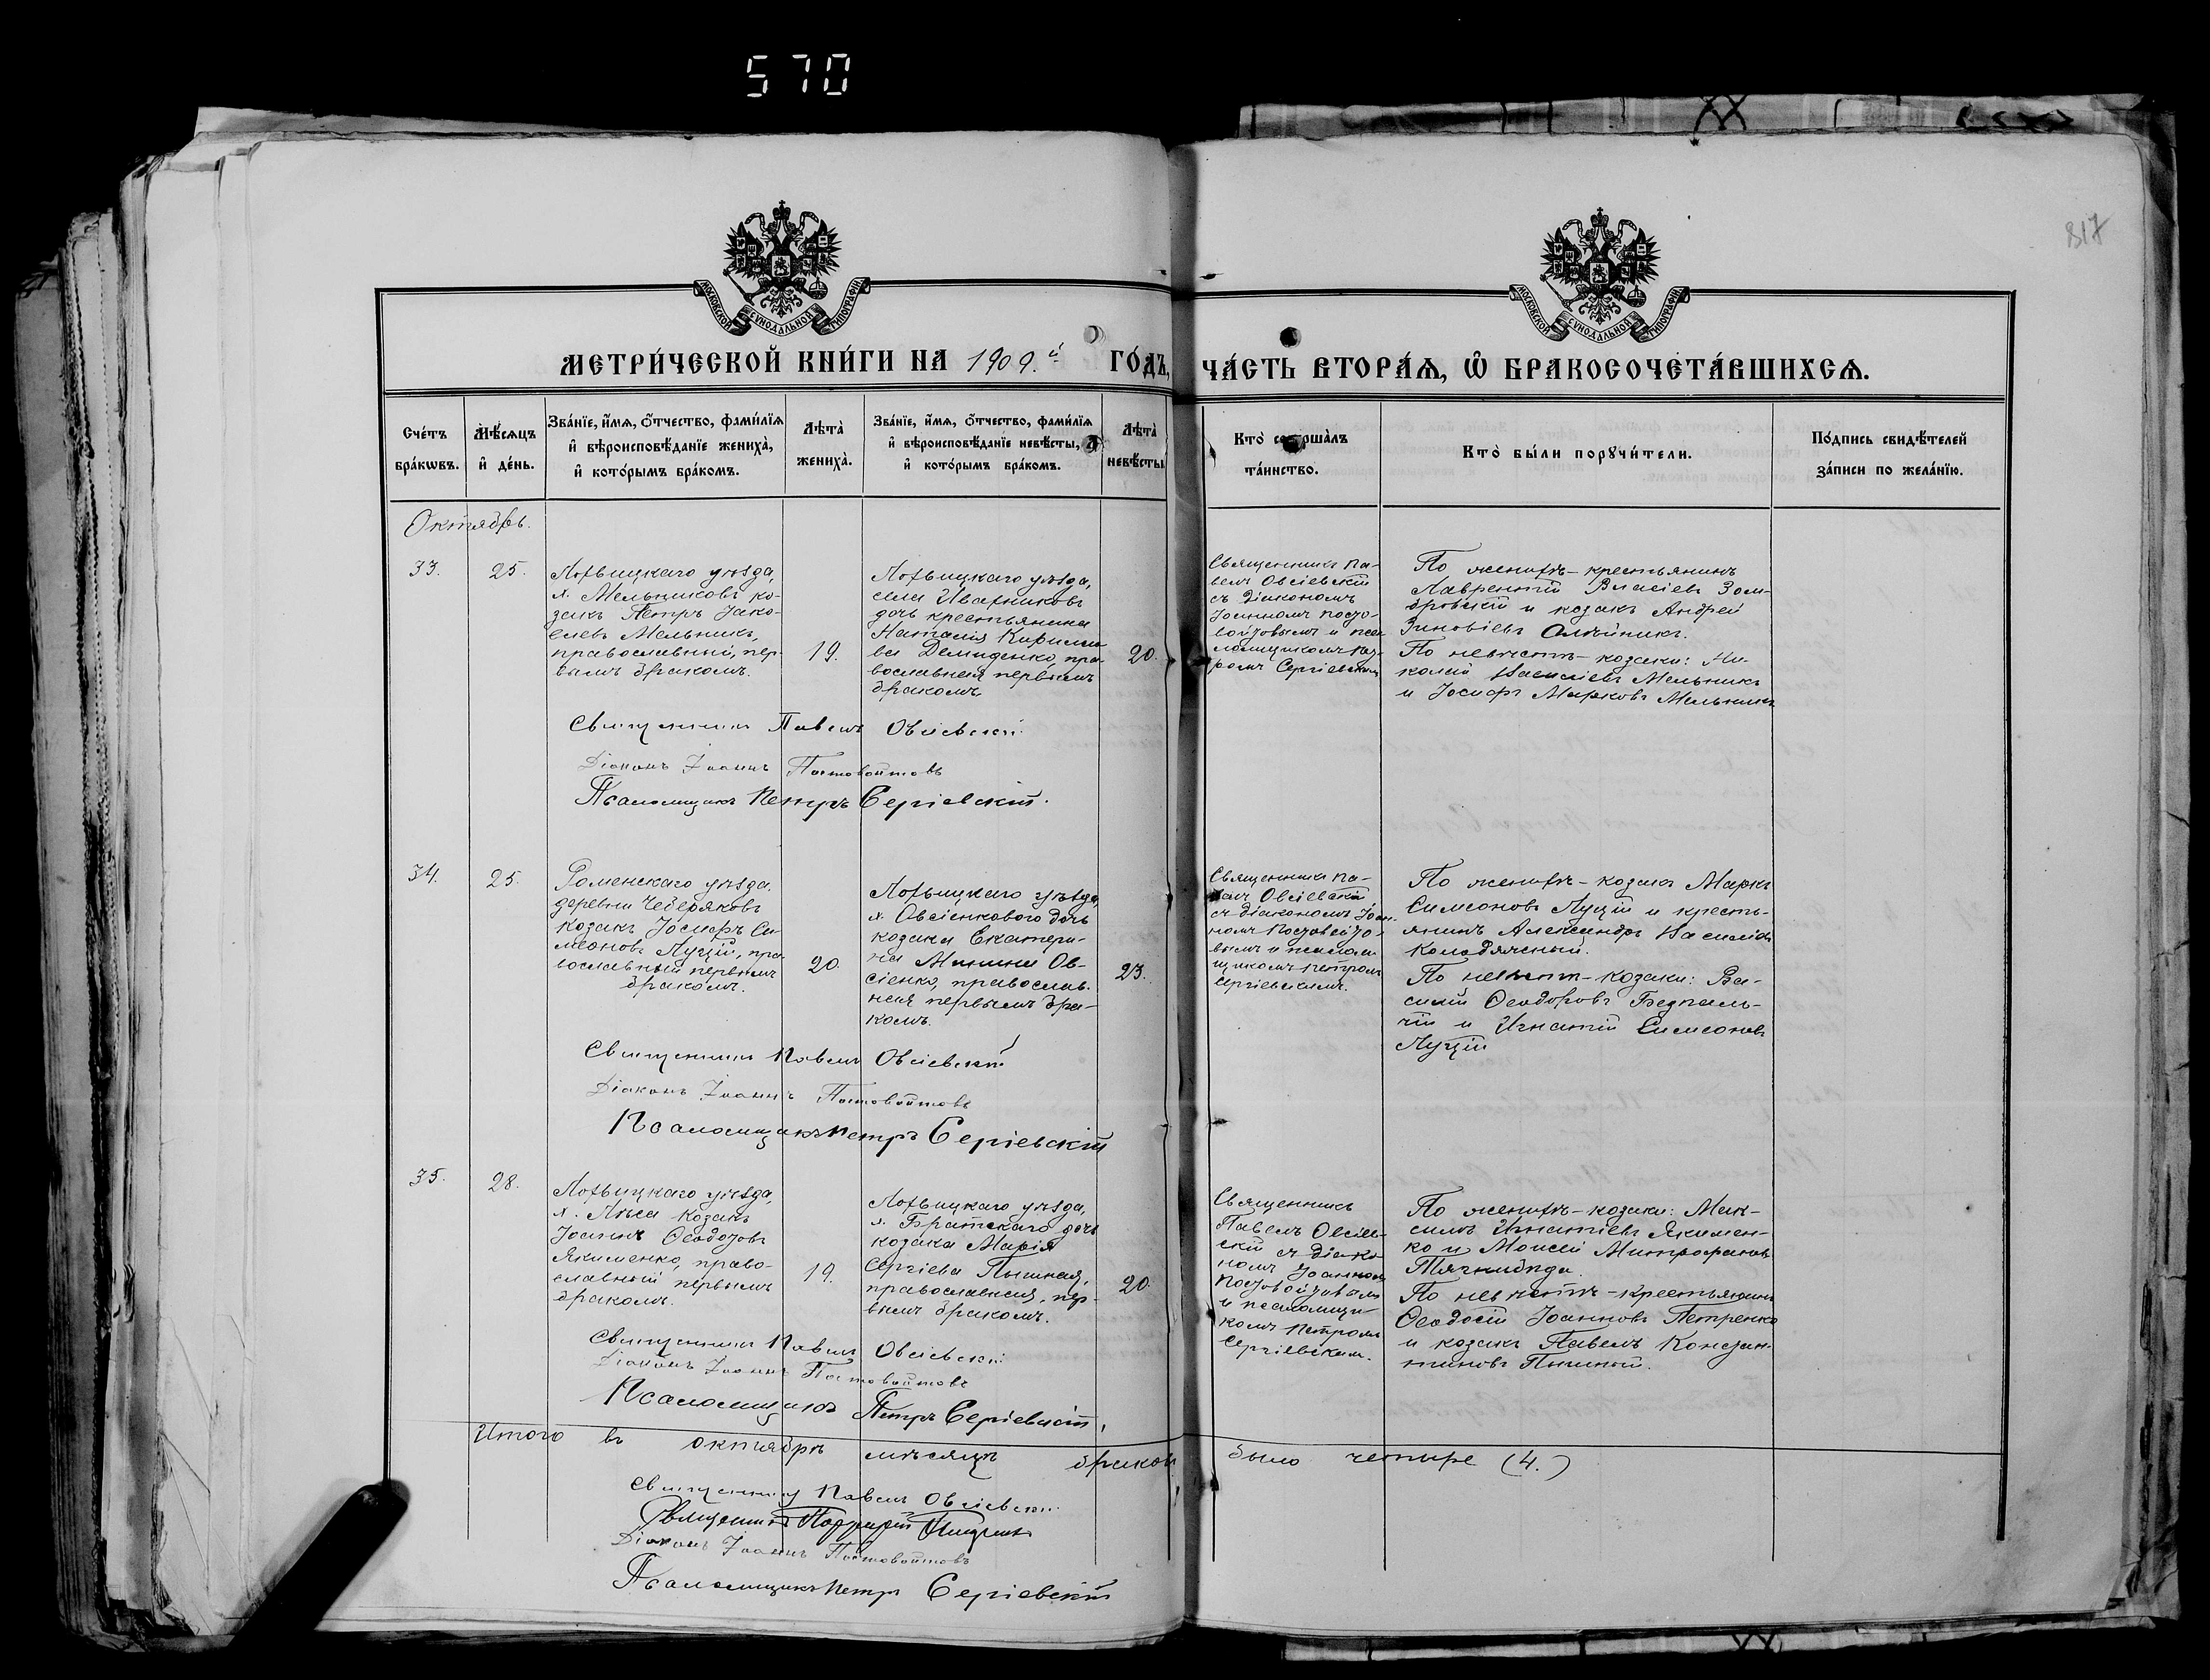 570
817
МОСКОВСКОЙ СѴНОДАЛЬНОЙ ТИПОГРАФІИ
МОСКОВСКОЙ СѴНОДАЛЬНОЙ ТИПОГРАФІИ
МЕТРИ́ЧЕСКОЙ КНИ́ГИ НА 1909.й ГО́ДЪ, ЧА́СТЬ ВТОРА́Ѧ, Ѡ҆ БРАКОСОЧЕТА́ВШИХСѦ.
Сче́тъ
бра́кѡвъ.
Мѣ́сяцъ
и҆ де́нь.
Зва́нїе, и҆́мѧ, ѻ҆́тчество, фами́лїѧ
и҆ вѣроисповѣ́данїе жениха̀,
и҆ кото́рымъ бра́комъ.
Лѣта̀
жениха̀.
Зва́нїе, и҆́мѧ, ѻ҆́тчество, фами́лїѧ
и҆ вѣроисповѣ́данїе невѣ́сты,
и҆ кото́рымъ бра́комъ.
Лѣта̀
невѣ́сты
Кто̀ соверша́лъ
та́инство.
Кто̀ бы́ли порꙋчи́тели.
По́дпись свидѣ́телей
за́писи по жела́нїю.
Октябрь.
33.
25.
Лохвицкаго уѣзда,
х. Мельниковъ ко-
закъ Петръ Іако-
влевъ Мельникъ,
православный, пер-
вымъ бракомъ.
19.
Лохвицкаго уѣзда,
села Иваниковъ
дочь крестьянина
Наталія Кирилло-
ва Демиденко, пра-
вославная первымъ
бракомъ
20.
Священникъ Па-
велъ Овсіевскій
съ діакономъ
Іоанномъ Посто-
войтовымъ и пса-
ломщикомъ Пет-
ромъ Сергіевскимъ
По женихѣ – крестьянинъ
Лаврентій Власіевъ
и козакъ Андрей
Зиновіевъ Олѣйникъ.
По невѣстѣ – козаки: Ни-
колай Васильевъ Мельникъ
и Іосифъ Марковъ Мельникъ
Священникъ Павелъ Овсіевскій
Діаконъ Іоаннъ Постовойтовъ
Псаломщикъ Петръ Сергіевскій.
34.
25.
Роменскаго уѣзда,
деревни Чеберяковъ
козакъ Іосифъ Си-
меоновъ Луцій, пра-
вославный первымъ
бракомъ.
20.
Лохвицкаго уѣзда,
х. Овсіенкового дочь
козака Екатери-
на Минина Ов-
сіенко, православ-
ная первымъ бра-
комъ.
23.
Священникъ Па-
велъ Овсіевскій
съ діакономъ Іоан-
номъ Постовойто-
вымъ и псалом-
щикомъ Петромъ
Сергіевскимъ.
По женихѣ – козакъ Маркъ
Симеоновъ Луцій и кресть-
янинъ Александръ Василіевъ
Колодяжный.
По невѣстѣ – козаки: Ва-
силій Ѳеодоровъ Безпаль-
чій и Игнатій Симеоновъ
Луцій
Священникъ Павелъ Овсіевскій
Діаконъ Іоаннъ Постовойтовъ
Псаломщикъ Петръ Сергіевскій
35.
28.
Лохвицкаго уѣзда,
х. Лиса козакъ
Іоаннъ Ѳеодотовъ
Якименко, право-
славный первымъ
бракомъ.
19.
Лохвицкаго уѣзда,
х. Братскаго дочь
козака Марія
Сергіева Пышная,
православная, пер-
вымъ бракомъ.
20.
Священникъ
Павелъ Овсіев-
скій съ діако-
номъ Іоанномъ
Постовойтовымъ
и псаломщи-
комъ Петромъ
Сергіевскимъ.
По женихѣ – козаки: Мак-
симъ Игнатіевъ Якимен-
ко и Моисей Митрофановъ
Тягнибида
По невѣстѣ – крестьянинъ
Ѳеодосій Іоанновъ Петренко
и козакъ Павелъ Констан-
тиновъ Пышный.
Священникъ Павелъ Овсіевскій
Діаконъ Іоаннъ Постовойтовъ
Псаломщикъ Петръ Сергіевскій.
Итого въ октябрѣ мѣсяцѣ браковъ было четыре (4.)
Священникъ Павелъ Овсіевскій.
Священникъ Порфирій
Діаконъ Іоаннъ Постовойтовъ
Псаломщикъ Петръ Сергіевскій